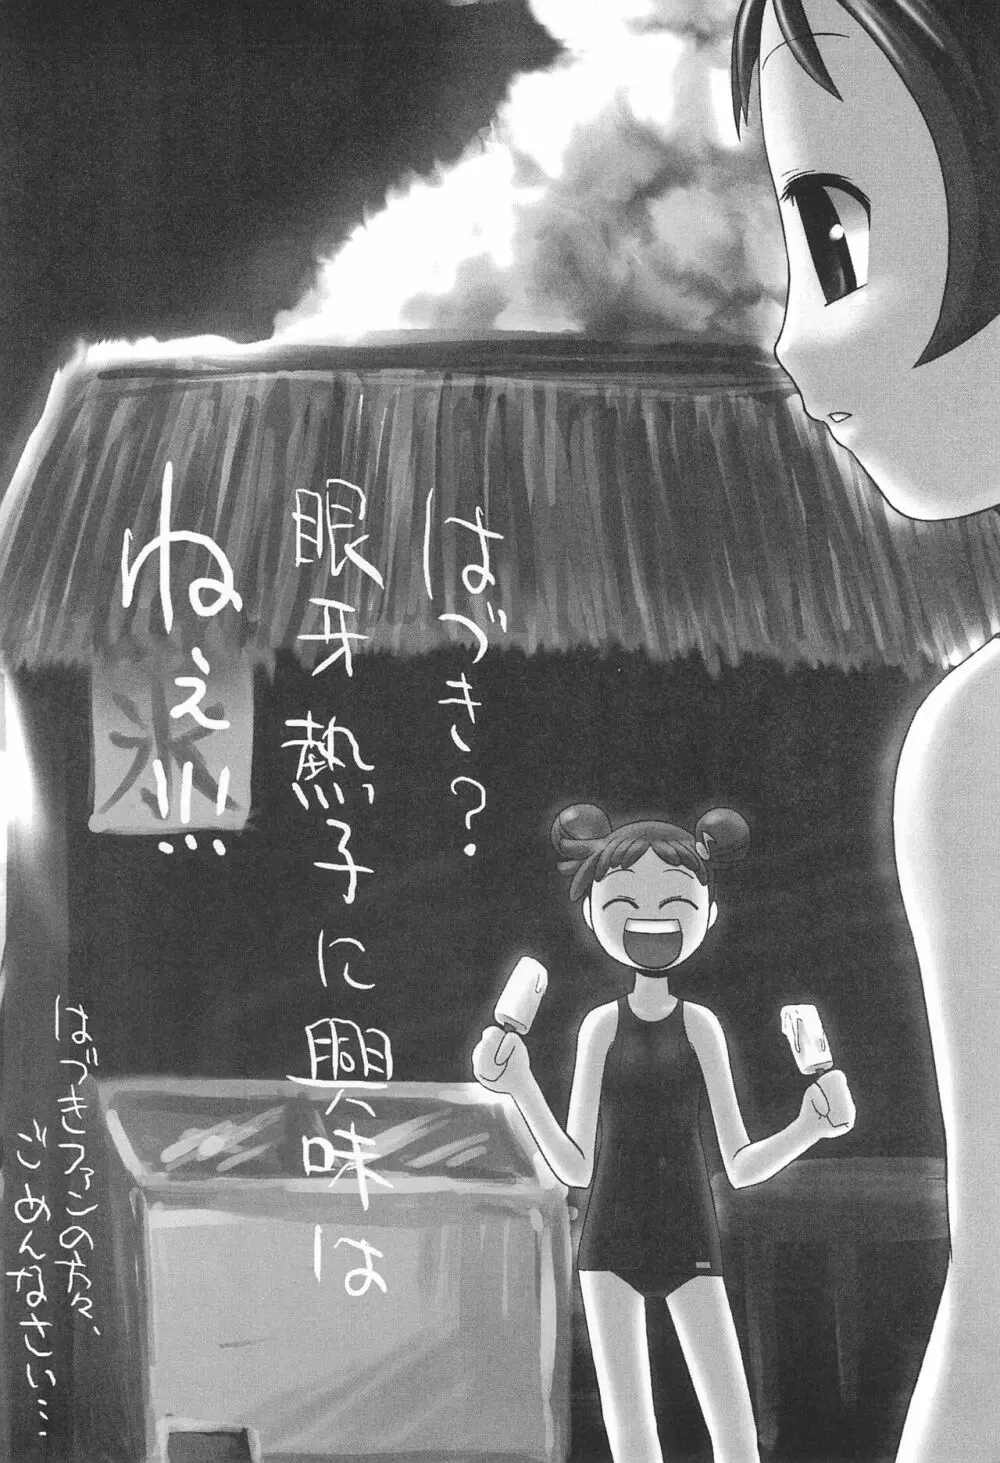 はづき?
眼牙熱子に興味は
ねえ!!!
氷
はづきファンの方々、
ごめんなさい…